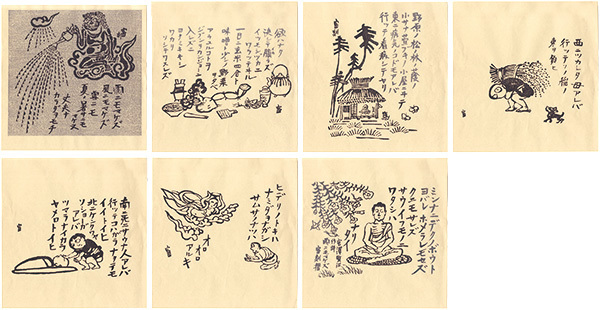 雨ニモマケズ
風ニモマケズ
雪ニモ
夏ノ暑サニモマケヌ
丈夫ナ
カラダヲモチ
慾ハナク
決シテ瞋ラズ
イツモシヅカニ
ワラッテヰル
一日ニ玄米四合ト
味噌ト少シノ野菜
ヲタベ
アラユルコトヲ
ジブンヲカンジョウニ
入レズニ
ヨクミキキシ
ワカリ
ソシテワスレズ
野原ノ松ノ林ノ蔭ノ
小サナ萱ブキノ小屋ニヰテ
東ニ病気ノコドモアレバ
行ッテ看病シテヤリ
西ニツカレタ母アレバ
行ッテソノ稲ノ
束ヲ負ヒ
南ニ死ニサウナ人アレバ
行ッテコハガラナクテモ
イイトイヒ
北ニケンクヮヤ
ソショウガ
アレバ
ツマラナイカラ
ヤメロトイヒ
ヒデリノトキハ
ナミダヲナガシ
サムサノナツハ
オロオロ
アルキ
ミンナニデクノボウト
ヨバレホメラレモセズ
クニモサレズ
サウイフモノニ
ワタシハ
ナリタイ